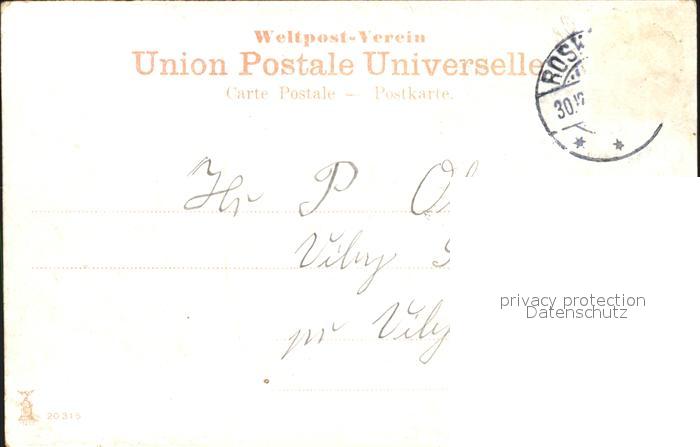 Weltpost-Verein
Union Postale Universelle
Carte Postale — Postkarte.
ROSK
30.12
Hr P
Viby
pr Viby
privacy protection
Datenschutz
20315